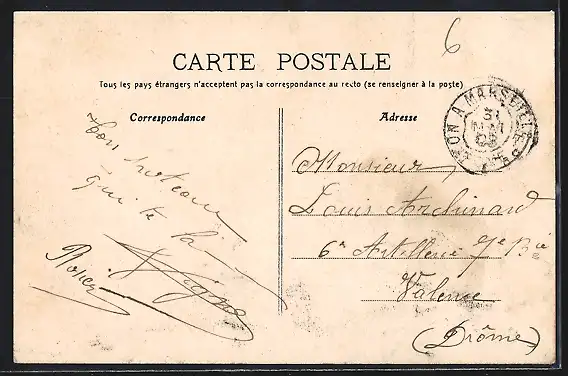 6
CARTE POSTALE
Tous les pays étrangers n'acceptent pas la correspondance au recto (se renseigner à la poste)
Correspondance
Adresse
LYON A MARSEILLE
31
Monsieur
Louis Archinard
6e Artillerie 7e Bie
Valence
(Drôme)
Ton
qui te la